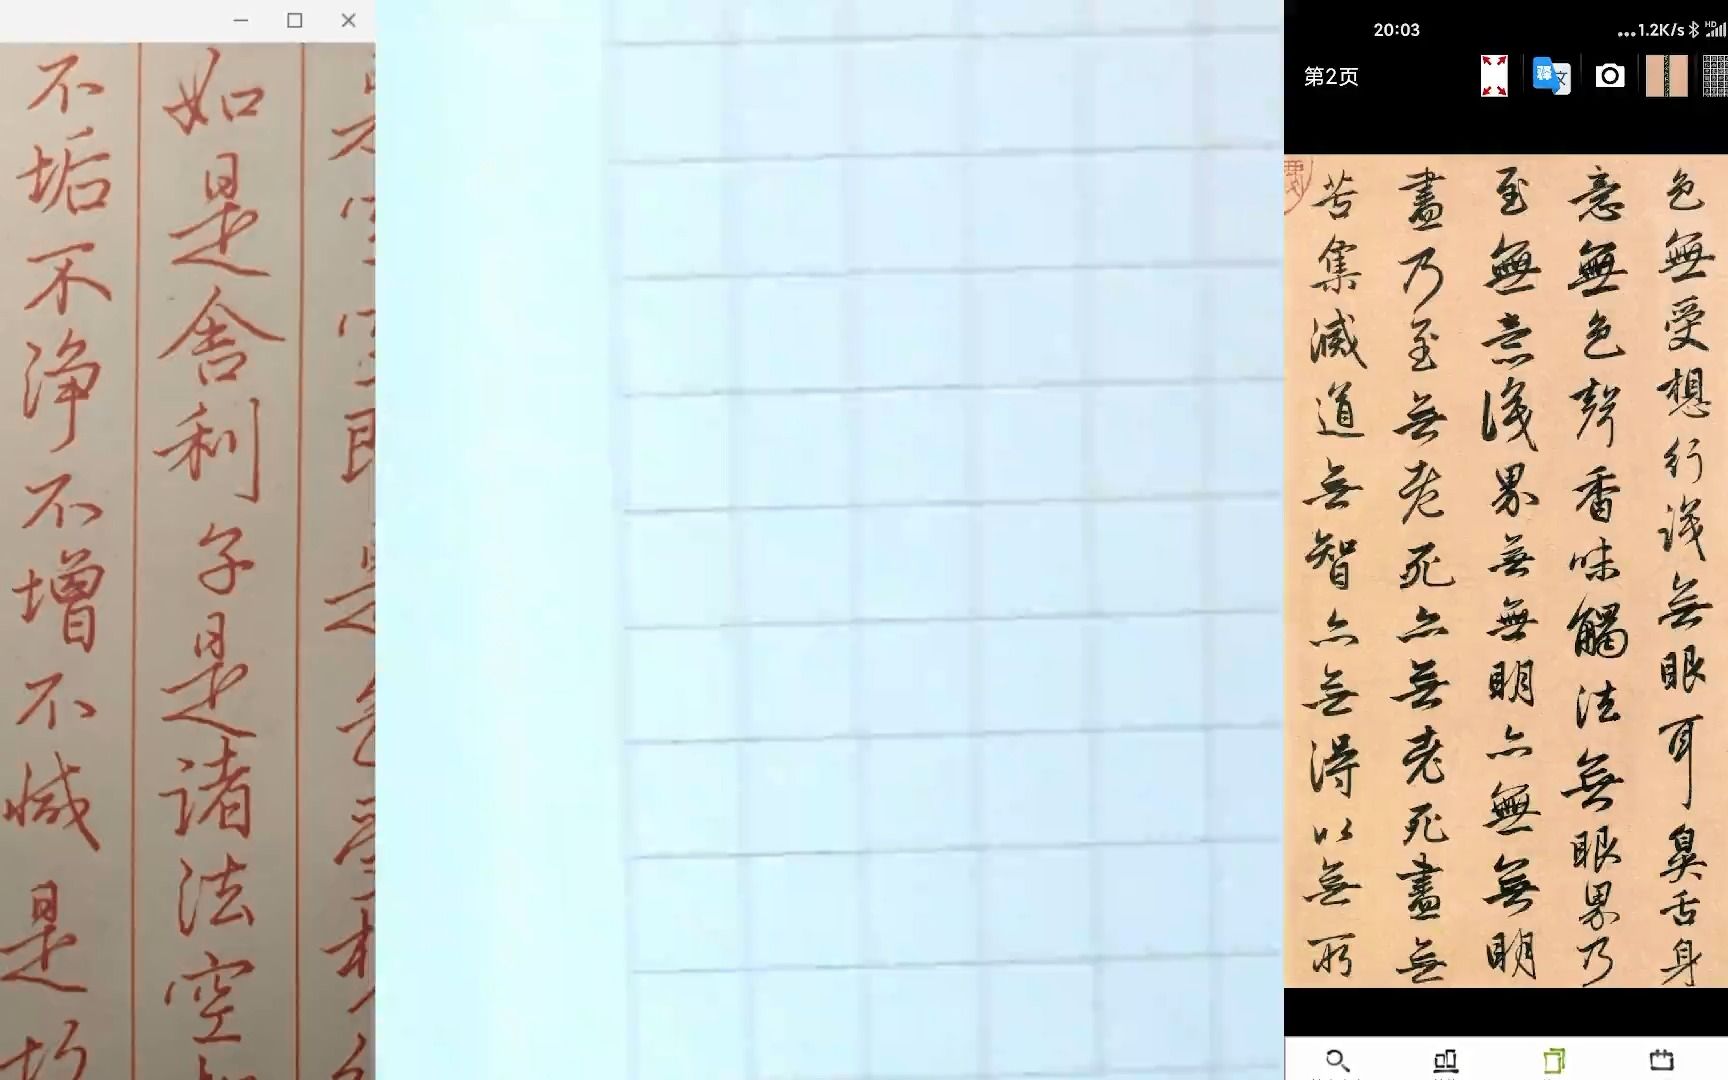 如是舍利子是诸法空
不垢不净不增不减是
20:03
...1.2K/s
HD
第2页
译 文
色無受想行識無眼耳鼻舌身
意無色聲香味觸法無眼界乃
至無意識界無無明亦無無明
盡乃至無老死亦無老死盡無
苦集滅道無智亦無得以無所